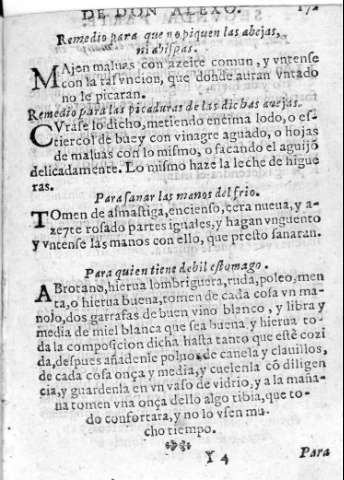 DE DON ALEXO. 172
Remedio para que no piquen las abejas,
ni abispas.
MAjen maluas con azeite comun, y vntense
con la tal vncion, que donde auran vntado
no le picaran.
Remedio para las picaduras de las dichas auejas.
CVrase lo dicho, metiendo encima lodo, o es-
tiercol de buey con vinagre aguado, o hojas
de maluas con lo mismo, o sacando el aguijõ
delicadamente. Lo mismo haze la leche de higue
ras.
Para sanar las manos del frio.
TOmen de almastiga, encienso, cera nueua, y a-
zeyte rosado partes iguales, y hagan vnguento
y vntense las manos con ello, que presto sanaran.
Para quien tiene debil estomago.
ABrotano, hierua lombriguera, ruda, poleo, men
ta, o hierua buena, tomen de cada cosa vn ma-
nojo, dos garrafas de buen vino blanco, y libra y
media de miel blanca que sea buena, y hierua to-
da la composicion dicha hasta tanto que estè cozi
da, despues añadenle poluos de canela y clauillos,
de cada cosa onça y media, y cuelenla cõ diligen
cia, y guardenla en vn vaso de vidrio, y a la maña-
na tomen vna onça dello algo tibia, que to-
do confortara, y no lo vsen mu-
cho tiempo.
Y 4 Para